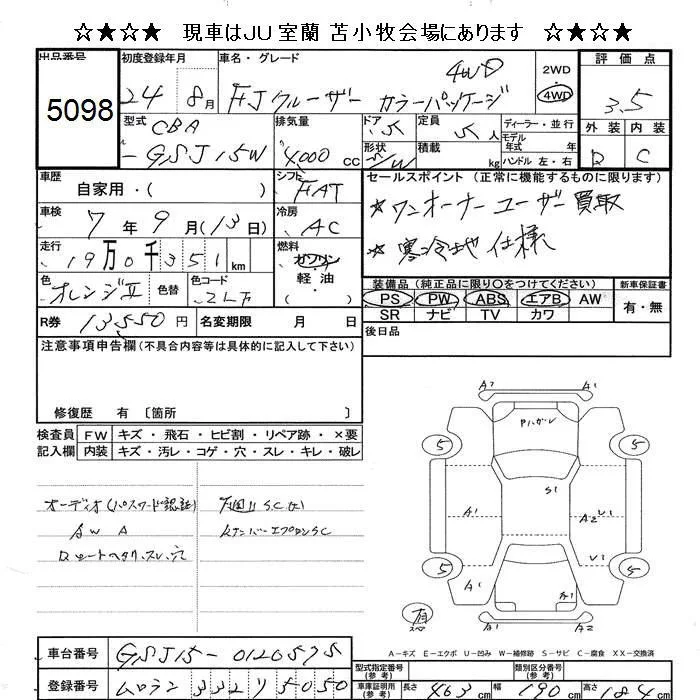 ☆★☆★ 現車はJU室蘭 苫小牧会場にあります ☆★☆★
出品番号 初度登録年月 車名・グレード 評価点
5098 24 8月 FJクルーザー カラーパッケージ 4WD 2WD・4WD 3.5
外装 内装
C
型式 CBA 排気量 ドア 定員 ディーラー・並行
-GSJ15W 4000cc 5 5人 モデル年式 年
形状 積載 kg ハンドル 左・右
S/W
車歴 シフト セールスポイント(正常に機能するものに限ります)
自家用・( ) FAT ★ワンオーナーユーザー買取
車検 冷房
7年9月(13日) AC ★寒冷地仕様
走行 燃料
19万0千351km ガソリン 軽油・( )
色 色替 色コード 装備品(純正品に限り○をつけてください) 新車保証書
オレンジⅡ PS PW ABS エアB AW 有・無
SR ナビ TV カワ
R券 13550円 名変期限 月 日
後日品
注意事項申告欄(不具合内容等は具体的に記入して下さい)
修復歴 有〔箇所 〕
検査員 FW キズ・飛石・ヒビ割・リペア跡・×要
記入欄 内装 キズ・汚レ・コゲ・穴・スレ・キレ・破レ
オーディオ(パスワード認証)
A2 A1
5 5
S1
A1 A2 U1
V1
5 5
A1
有
A1 A2
A-キズ E-エクボ U-凹み W-補修跡 S-サビ C-腐食 XX-交換済
車台番号 GSJ15-0120575
登録番号 ムロラン 332 5050
型式指定番号(参考) 類別区分番号(参考)
車庫証明用(参考) 長さ 463cm 幅 190cm 高さ 184cm